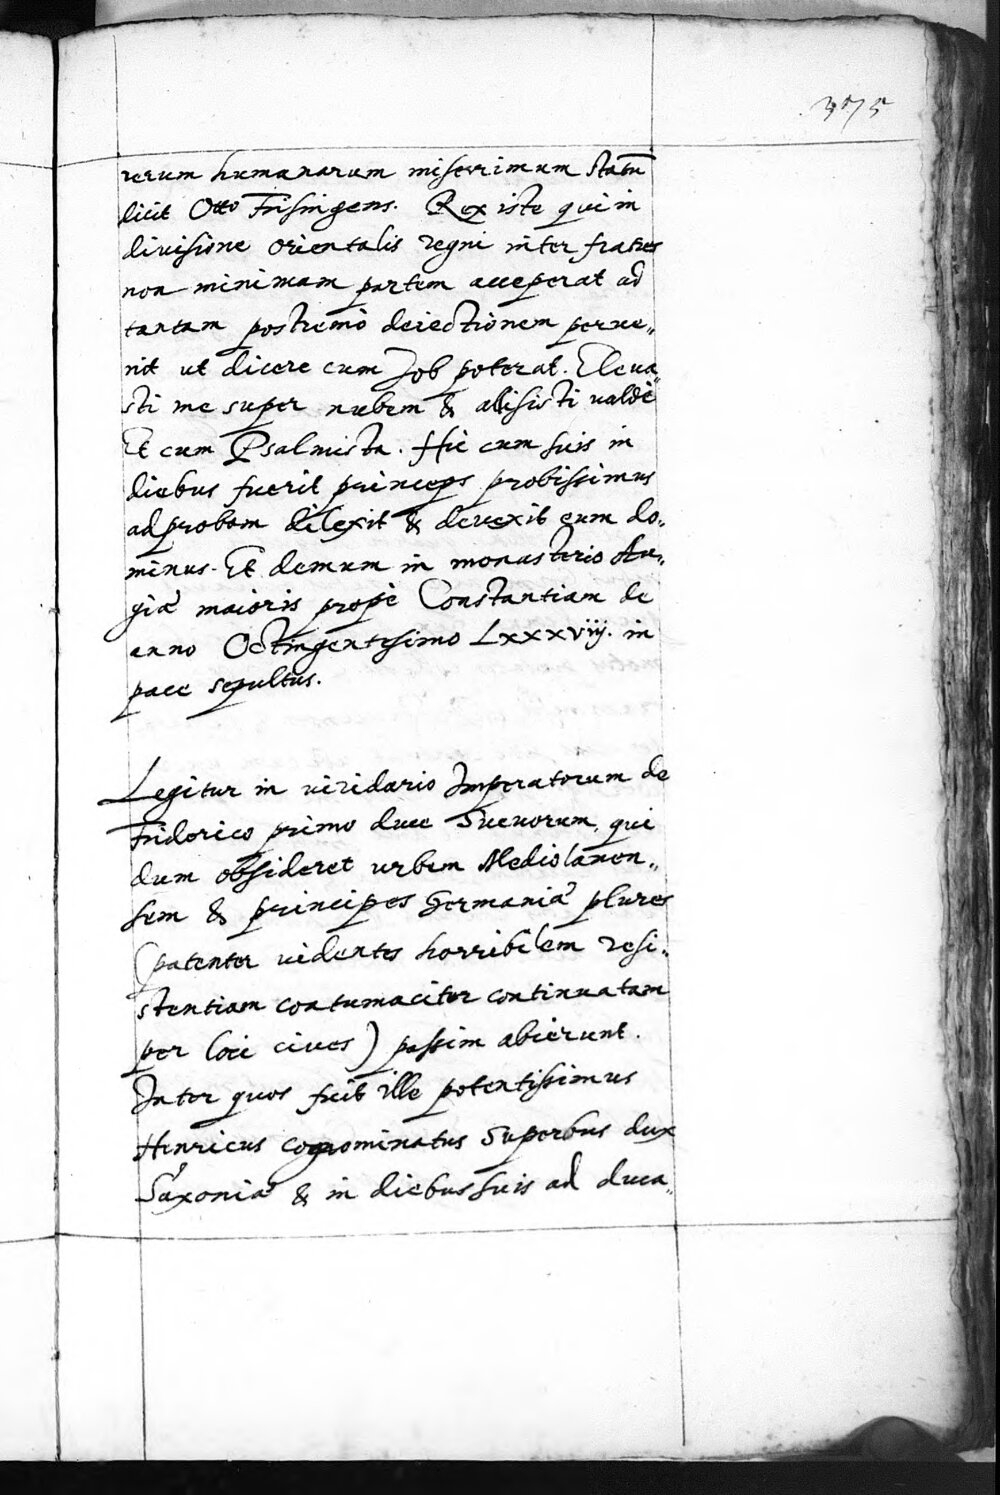 375
rerum humanarum miserrimum statū
licit Otto Frisingens. Rex iste qui in
diuisione orientalis regni inter fratres
non minimam partem acceperat ad
tantam postremò deiectionem perue„
nit ut dicere cum Job poterat. Eleua„
sti me super nubem & allisisti ualdè
Et cum Psalmista. Hic cum suis in
diebus fuerit princeps probissimus
ad probam dilexit & deuexit eum do„
minus. Et demum in monasterio Au„
giæ maioris propè Constantiam de
anno Octingentesimo Lxxxviij. in
pace sepultus.
Legitur in viridario Imperatorum de
Friderico primo duce Sueuorum, qui
dum obsideret urbem Mediolanen„
sem & principes Germaniæ plures
(patenter uidentes horribilem resi„
stentiam contumaciter continuatam
per loci ciues) passim abierunt.
Inter quos fuit ille potentissimus
Henricus cognominatus Superbus dux
Saxoniæ & in diebus suis ad duca„